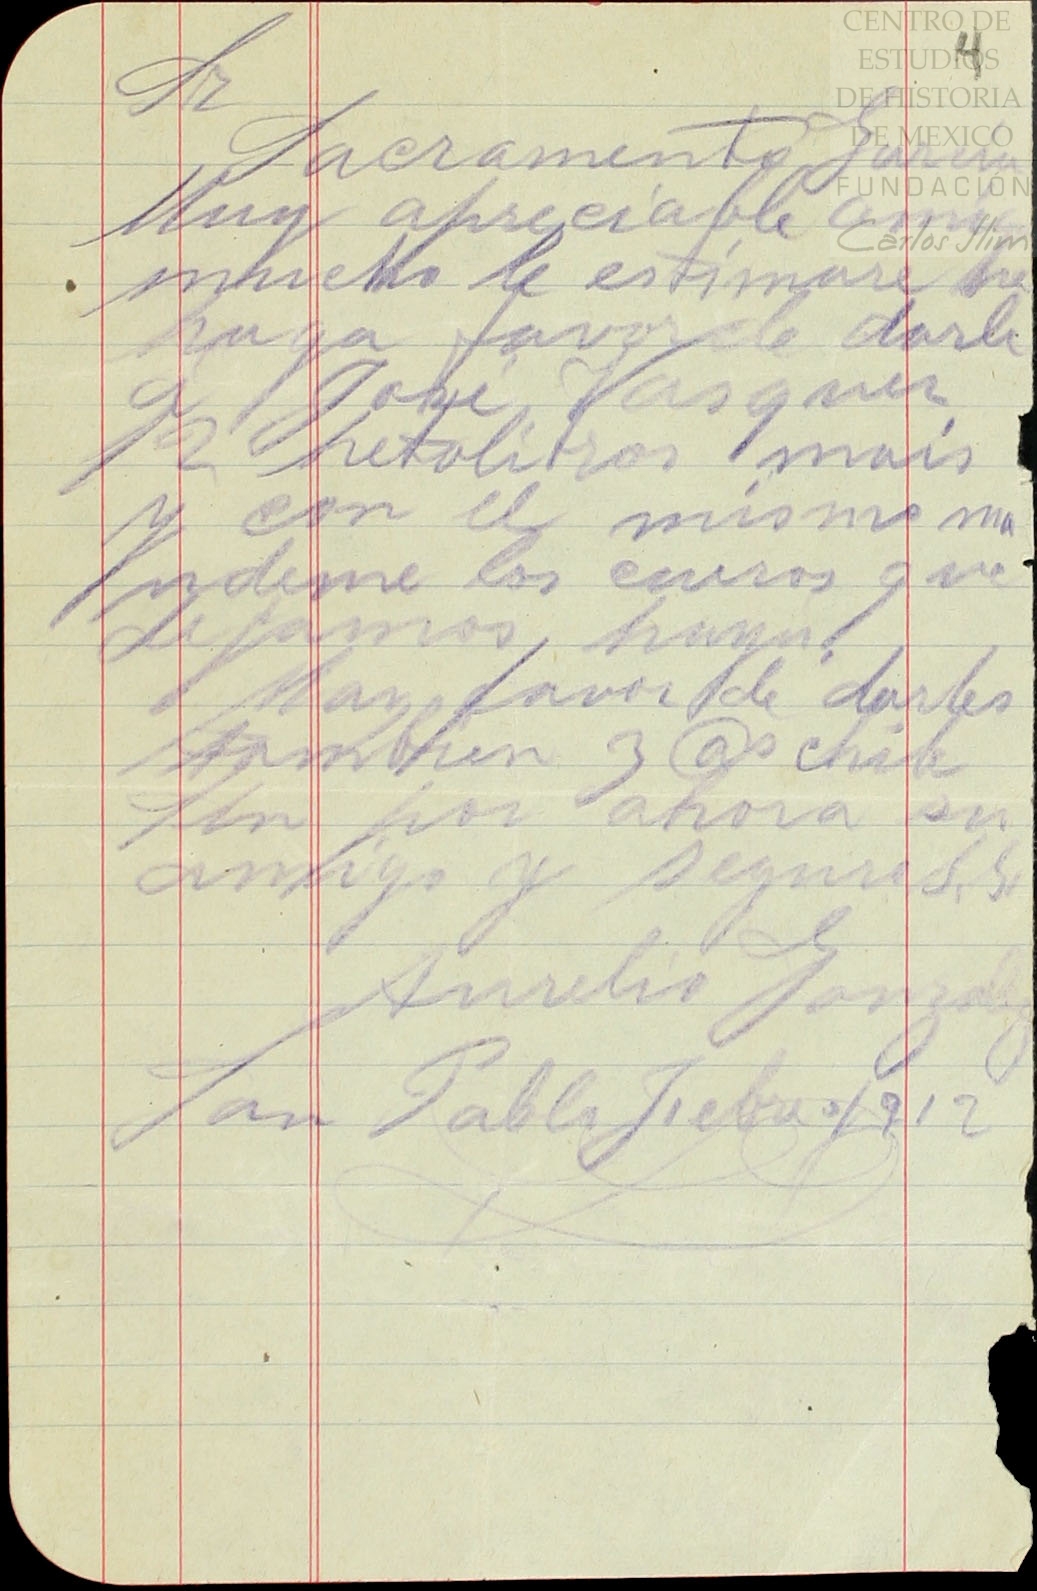 CENTRO DE
ESTUDIOS
DE HISTORIA
DE MEXICO
FUNDACIÓN
Carlos Slim
4
Sr
Sacramento Garcia
Muy apreciable amigo
mucho le estimare me
haga favor de darle
a José Vasquez
12 hetolitros mais
y con el mismo ma
ndeme los cueros que
dejamos haya.
Hay favor de darles
tambien 3 @s chile
Sin por ahora su
amigo y seguro S. S.
Aurelio Gonzalez
San Pablo 1912